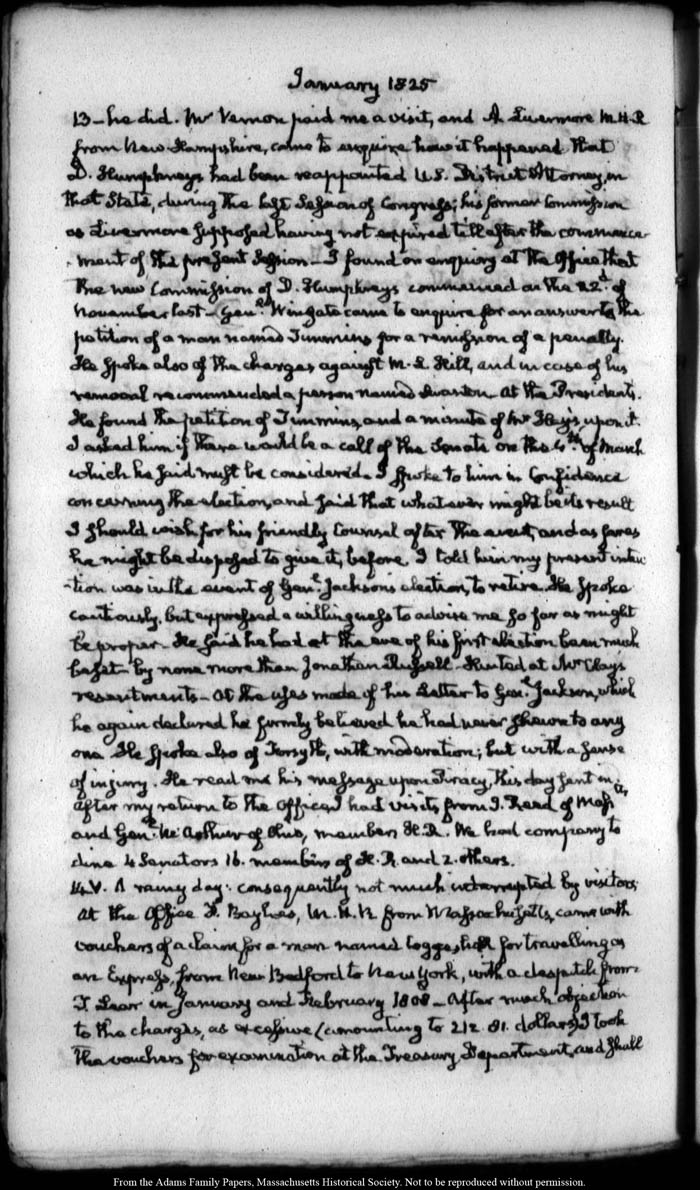 January 1825
13 – he did. Mr Vernon paid me a visit, and A Livermore M.H.R
from New Hampshire, came to enquire how it happened that
D. Humphreys had been reappointed U.S. District Attorney, in
that State, during the last Session of Congress; his former Commission
as Livermore supposed having not expired till after the commence-
ment of the present Session – I found on enquiry at the Office that
the new Commission of D. Humphreys commenced on the 22d. of
November last – Genl. Wingate came to enquire for an answer to the
petition of a man named Timmins for a remission of a penalty.
He spoke also of the charges against M. L. Hill, and in case of his
removal recommended a person named – At the Presidents.
He found the petition of Timmins, and a minute of Mr Hay's upon it.
I asked him if there would be a call of the Senate on the 4th. of March
which he said must be considered – I spoke to him in Confidence
concerning the election, and said that whatever might be its result
I should wish for his friendly Counsel after the event, and as far as
he might be disposed to give it, before. I told him my present inten-
-tion was in the event of Genl. Jackson's election, to retire. He spoke
cautiously, but expressed a willingness to advise me so far as might
be proper – He said he had at the eve of his first election been much
beset – by none more than Jonathan Russell – Hinted at Mr Clay's
resentments – at the uses made of his Letter to Genl. Jackson, which
he again declared he firmly believed he had never shewn to any
one. He spoke also of Forsyth, with moderation; but with a sense
of injury. He read me his message upon Piracy, this day sent in.
After my return to the Office, I had visits from J. Reed of Massts,
and Genl. McArthur of Ohio, members H.R. We had company to
dine 4 Senators 16. members of H. R. and 2. others.
14. V. A rainy day: consequently not much interrupted by visitors,
At the Office F. Baylies, M.H.R from Massachusetts, came with
vouchers of a claim for a man named for travelling as
an Express, from New Bedford to New York, with a despatch from
T Lear in January and February 1808 – After much objection
to the charges, as excessive (amounting to 212. 81. dollars) I took
the vouchers for examination at the Treasury Department, and shall
From the Adams Family Papers, Massachusetts Historical Society. Not to be reproduced without permission.